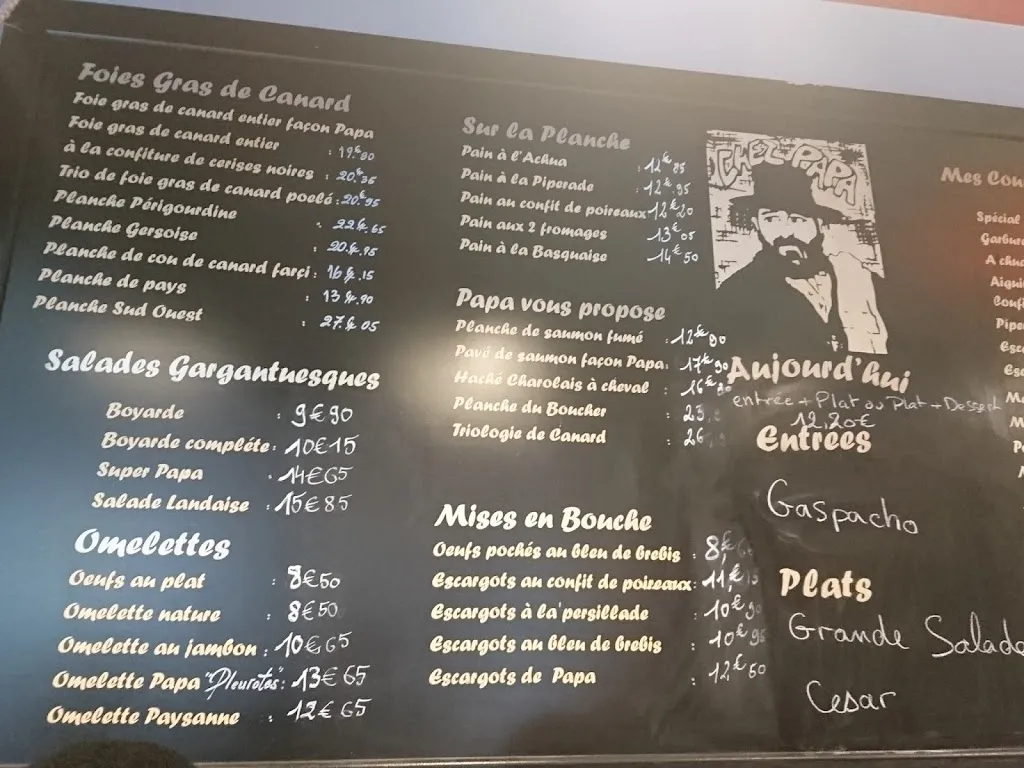 Foies Gras de Canard
Foie gras de canard entier façon Papa
Foie gras de canard entier : 19.€90
à la confiture de cerises noires : 20.€35
Trio de foie gras de canard poelé : 20.€95
Planche Périgourdine : 22.€.65
Planche Gersoise : 20.€.95
Planche de cou de canard farçi : 16.€.15
Planche de pays : 13.€.90
Planche Sud Ouest : 27.€.05
Salades Gargantuesques
Boyarde : 9€90
Boyarde compléte : 10€15
Super Papa : 14€65
Salade Landaise : 15€85
Omelettes
Oeufs au plat : 8€50
Omelette nature : 8€50
Omelette au jambon : 10€65
Omelette Papa "Pleurotes" : 13€65
Omelette Paysanne : 12€65
Sur la Planche
Pain à l'Achua : 12€85
Pain à la Piperade : 12€.95
Pain au confit de poireaux 12€20
Pain aux 2 fromages 13€05
Pain à la Basquaise : 14€50
Papa vous propose
Planche de saumon fumé : 12€90
Pavé de saumon façon Papa : 17€90
Haché Charolais à cheval : 16€
Planche du Boucher : 23
Triologie de Canard : 26
Mises en Bouche
Oeufs pochés au bleu de brebis : 8€
Escargots au confit de poireaux : 11€15
Escargots à la persillade : 10€90
Escargots au bleu de brebis : 10€95
Escargots de Papa : 12€60
CHEZ PAPA
Aujourd'hui
entrée + Plat ou Plat + Dessert
12,20€
Entrees
Gaspacho
Plats
Grande Salade
Cesar
Mes Cou
Spécial
Garbur
A chuc
Aigui
Confi
Pipe
Esc
Esc